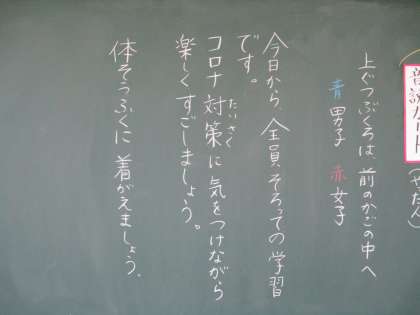 音読カード
(やだん)
上ぐつぶくろは、前のかごの中へ
青男子 赤女子
今日から、全員そろっての学習
です。
コロナ対策に気をつけながら
たいさく
楽しくすごしましょう。
体そうふくに着がえましょう。